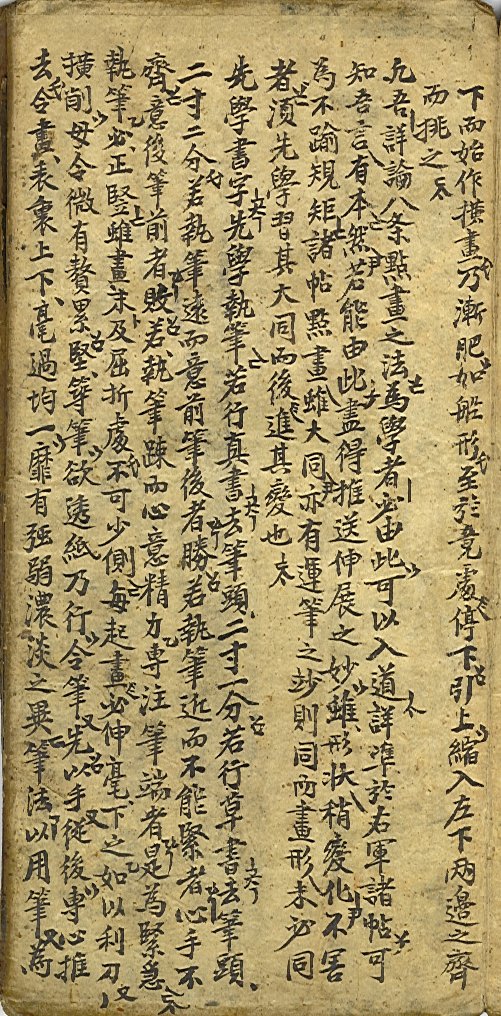 下而始作横畫乃漸肥如船形至於竟處停下引上縮入左下兩邊之齊
而挑之
凡吾詳論八条點畫之法為學者必由此可以入道詳準於右軍諸帖可
知吾言有本然若能由此盡得推送伸展之妙雖形状稍變化不害
為不踰規矩諸帖點畫雖大同亦有運筆之妙則同而畫形未必同
者湏先學習其大同而後進其變也
先學書字先學執筆若行真書去筆頭二寸一分若行草書去筆頭
二寸二分若執筆遠而意前筆後者勝若執筆近而不能緊者心手不
齊意後筆前者敗若執筆踈而心意精力専注筆端者是為緊急
執筆必正竪雖畫末及屈折處不可少側每起畫必伸毫下之如以利刀
横削毋令微有贅累堅筆欲透紙乃行令筆先以手從後専心推
去令畫表裏上下毫過均一靡有强弱濃淡之異筆法以用筆為